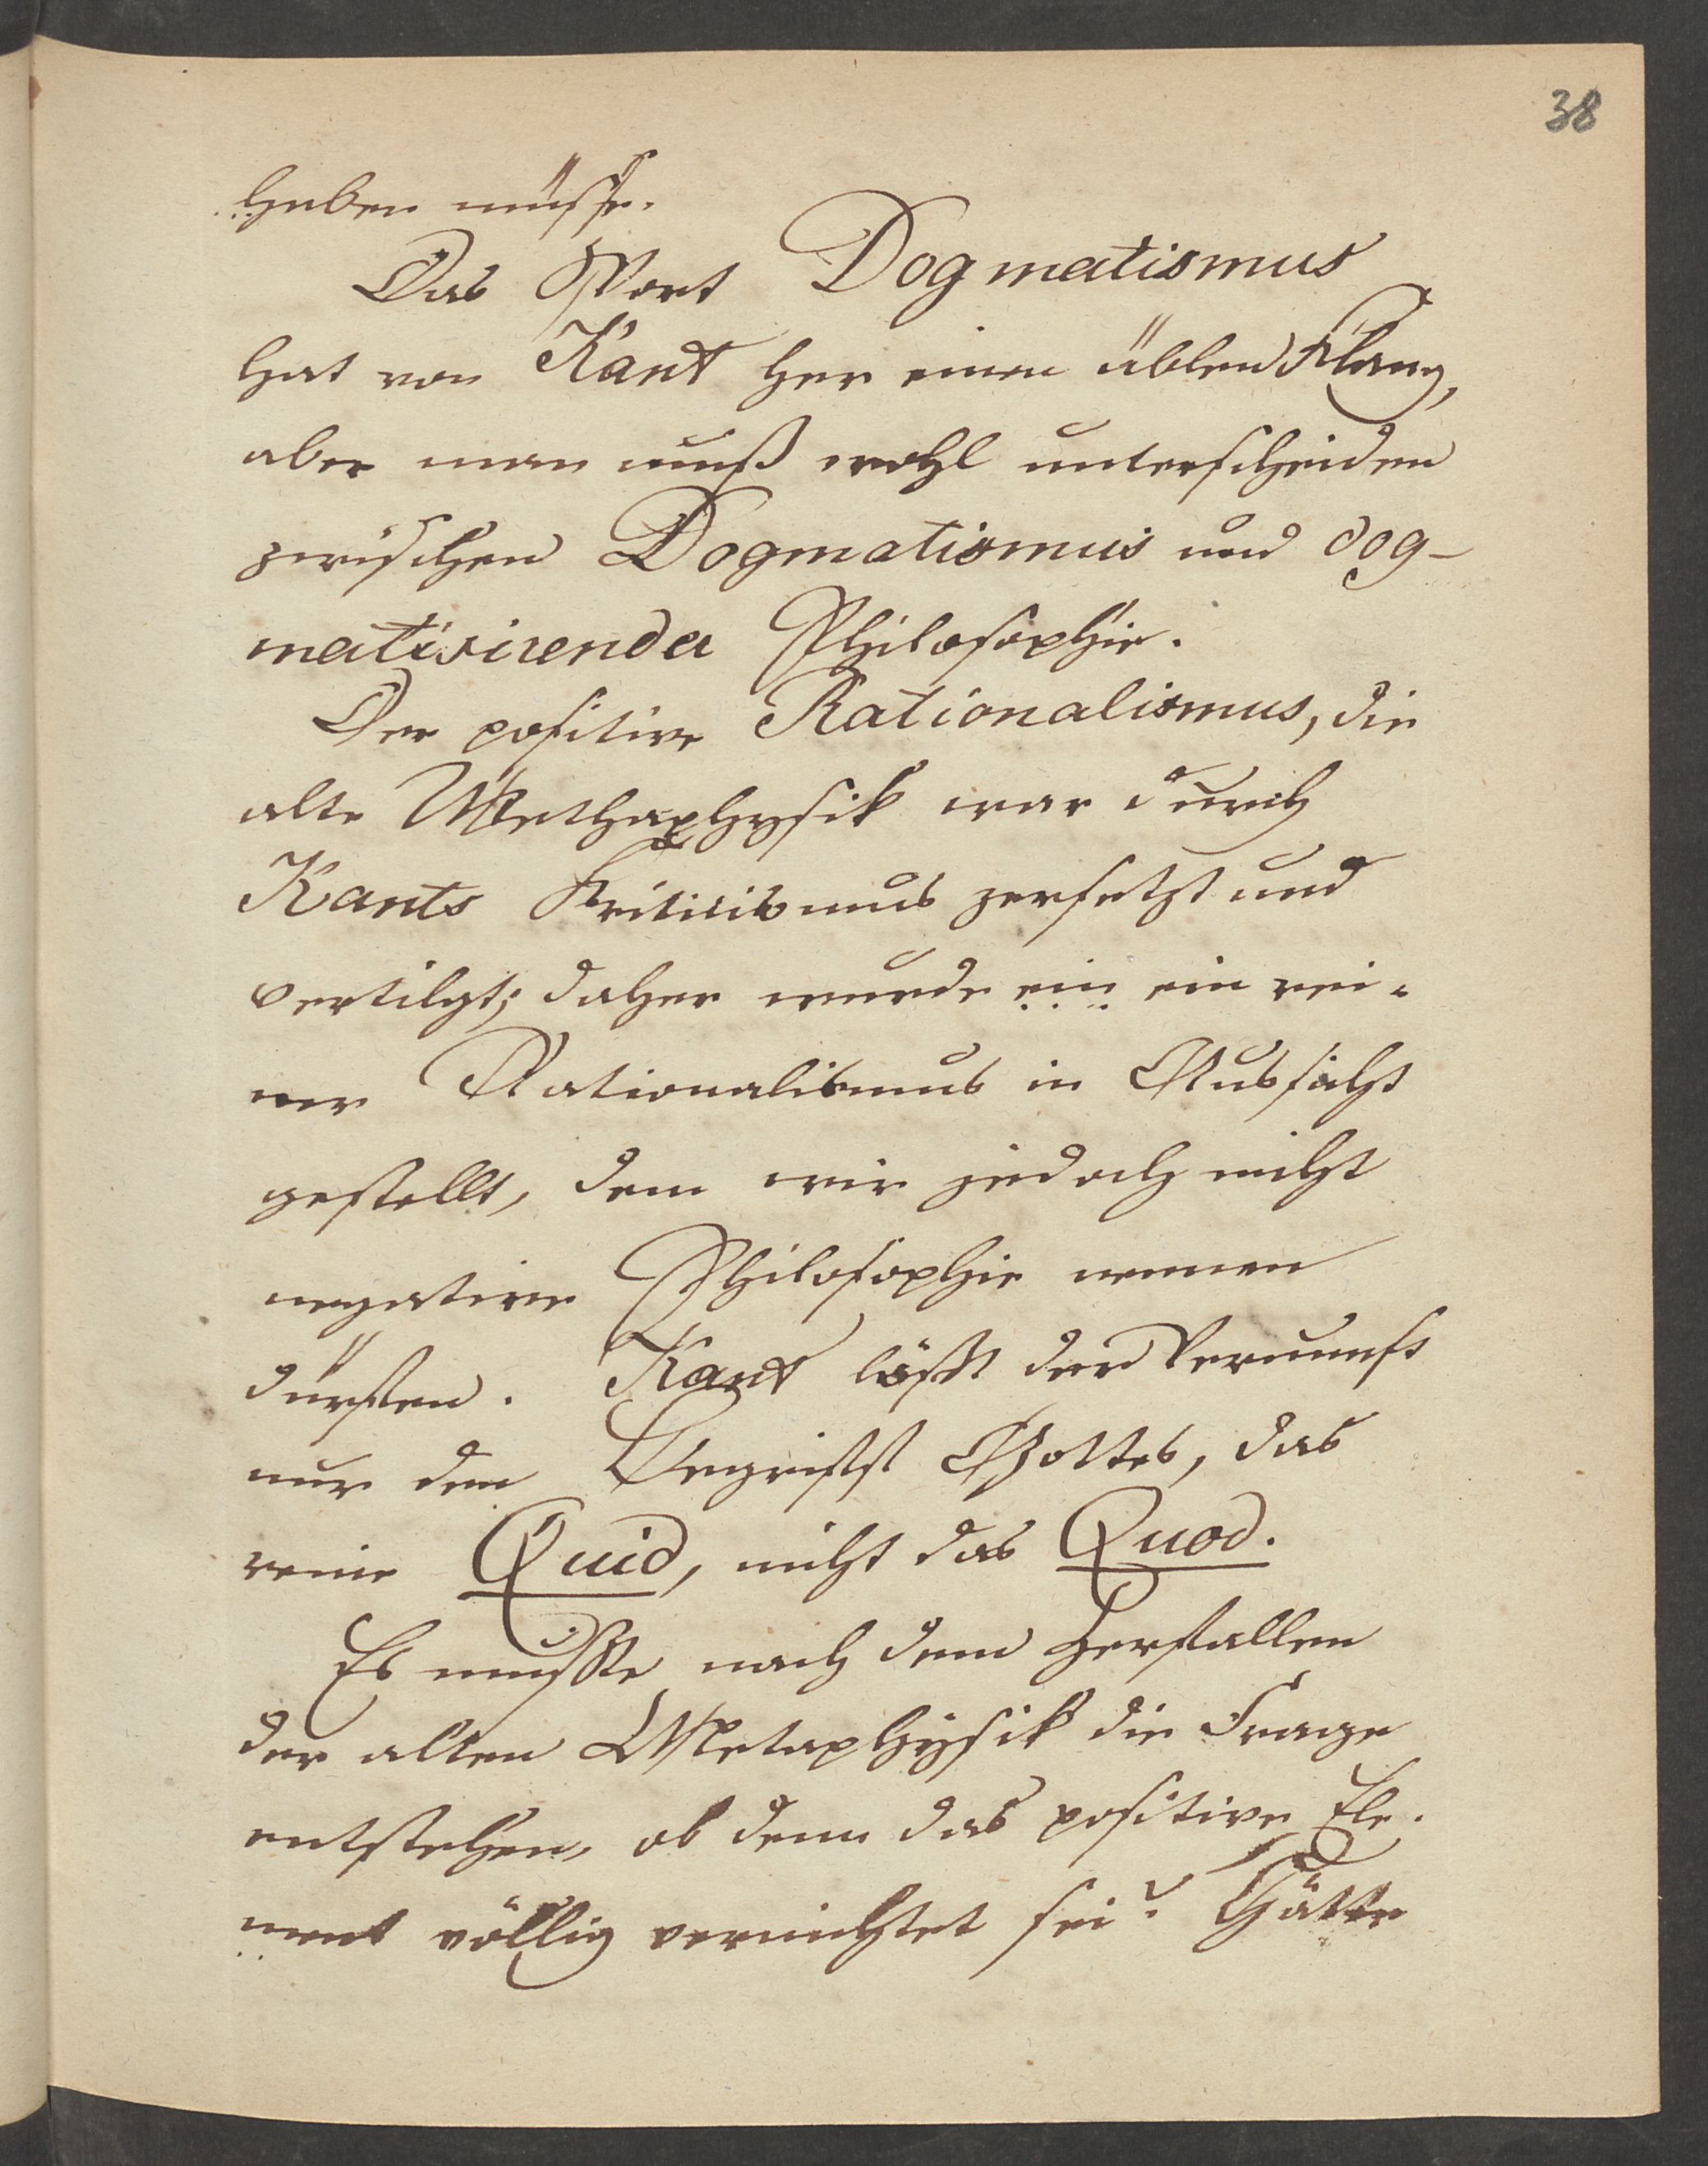 38
haben müsse.
Das Wort Dogmatismus
hat von Kant her einen üblen Klang,
aber man muß wohl unterscheiden
zwischen Dogmatismus und dog-
matisirender Philosophie.
Der positive Rationalismus, die
alte Methaphysik war durch
Kants Kriticismus zersetzt und
vertilgt; daher wurde ein ein rei-
ner Rationalismus in Aussicht
gestellt, den wir jedoch nicht
negative Philosophie nennen
dürfen. Kant läßt der Vernunft
nur den Begriff Gottes, das
reine Quid, nicht das Quod.
Es mußte nach dem Zerfallen
der alten Metaphysik die Frage
entstehen, ob denn das positive Ele-
ment völlig vernichtet sei? Hätte